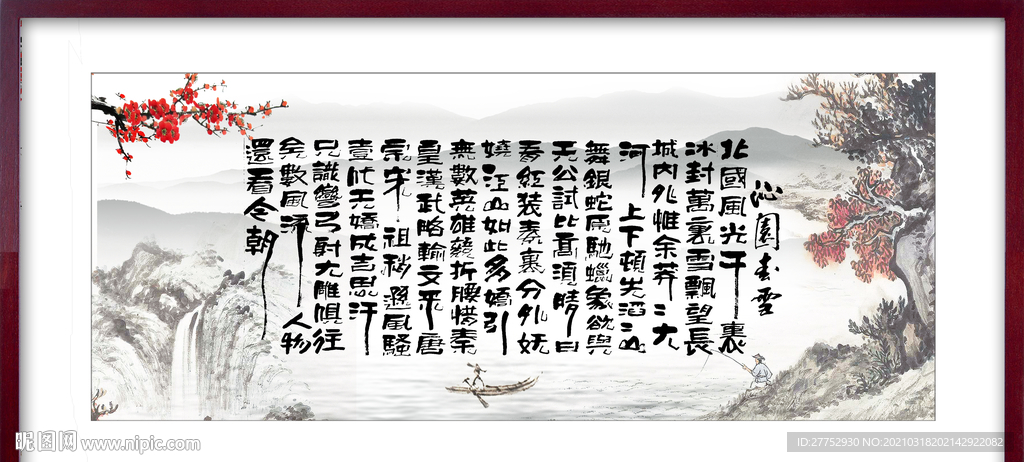 沁園春雪
北國風光千裏
冰封萬裏雪飄望長
城内外惟余莽〻大
河上下頓失滔〻山
舞銀蛇原馳蠟象欲與
天公試比高須晴日
看紅装素裹分外妖
嬈江山如此多嬌引
無數英雄競折腰惜秦
皇漢武略輸文采唐
宗宋祖稍遜風騷
壹代天嬌成吉思汗
只識彎弓射大雕俱往
矣數風流人物
還看今朝
昵图网 www.nipic.com
ID:27752930 NO:20210318202142922082